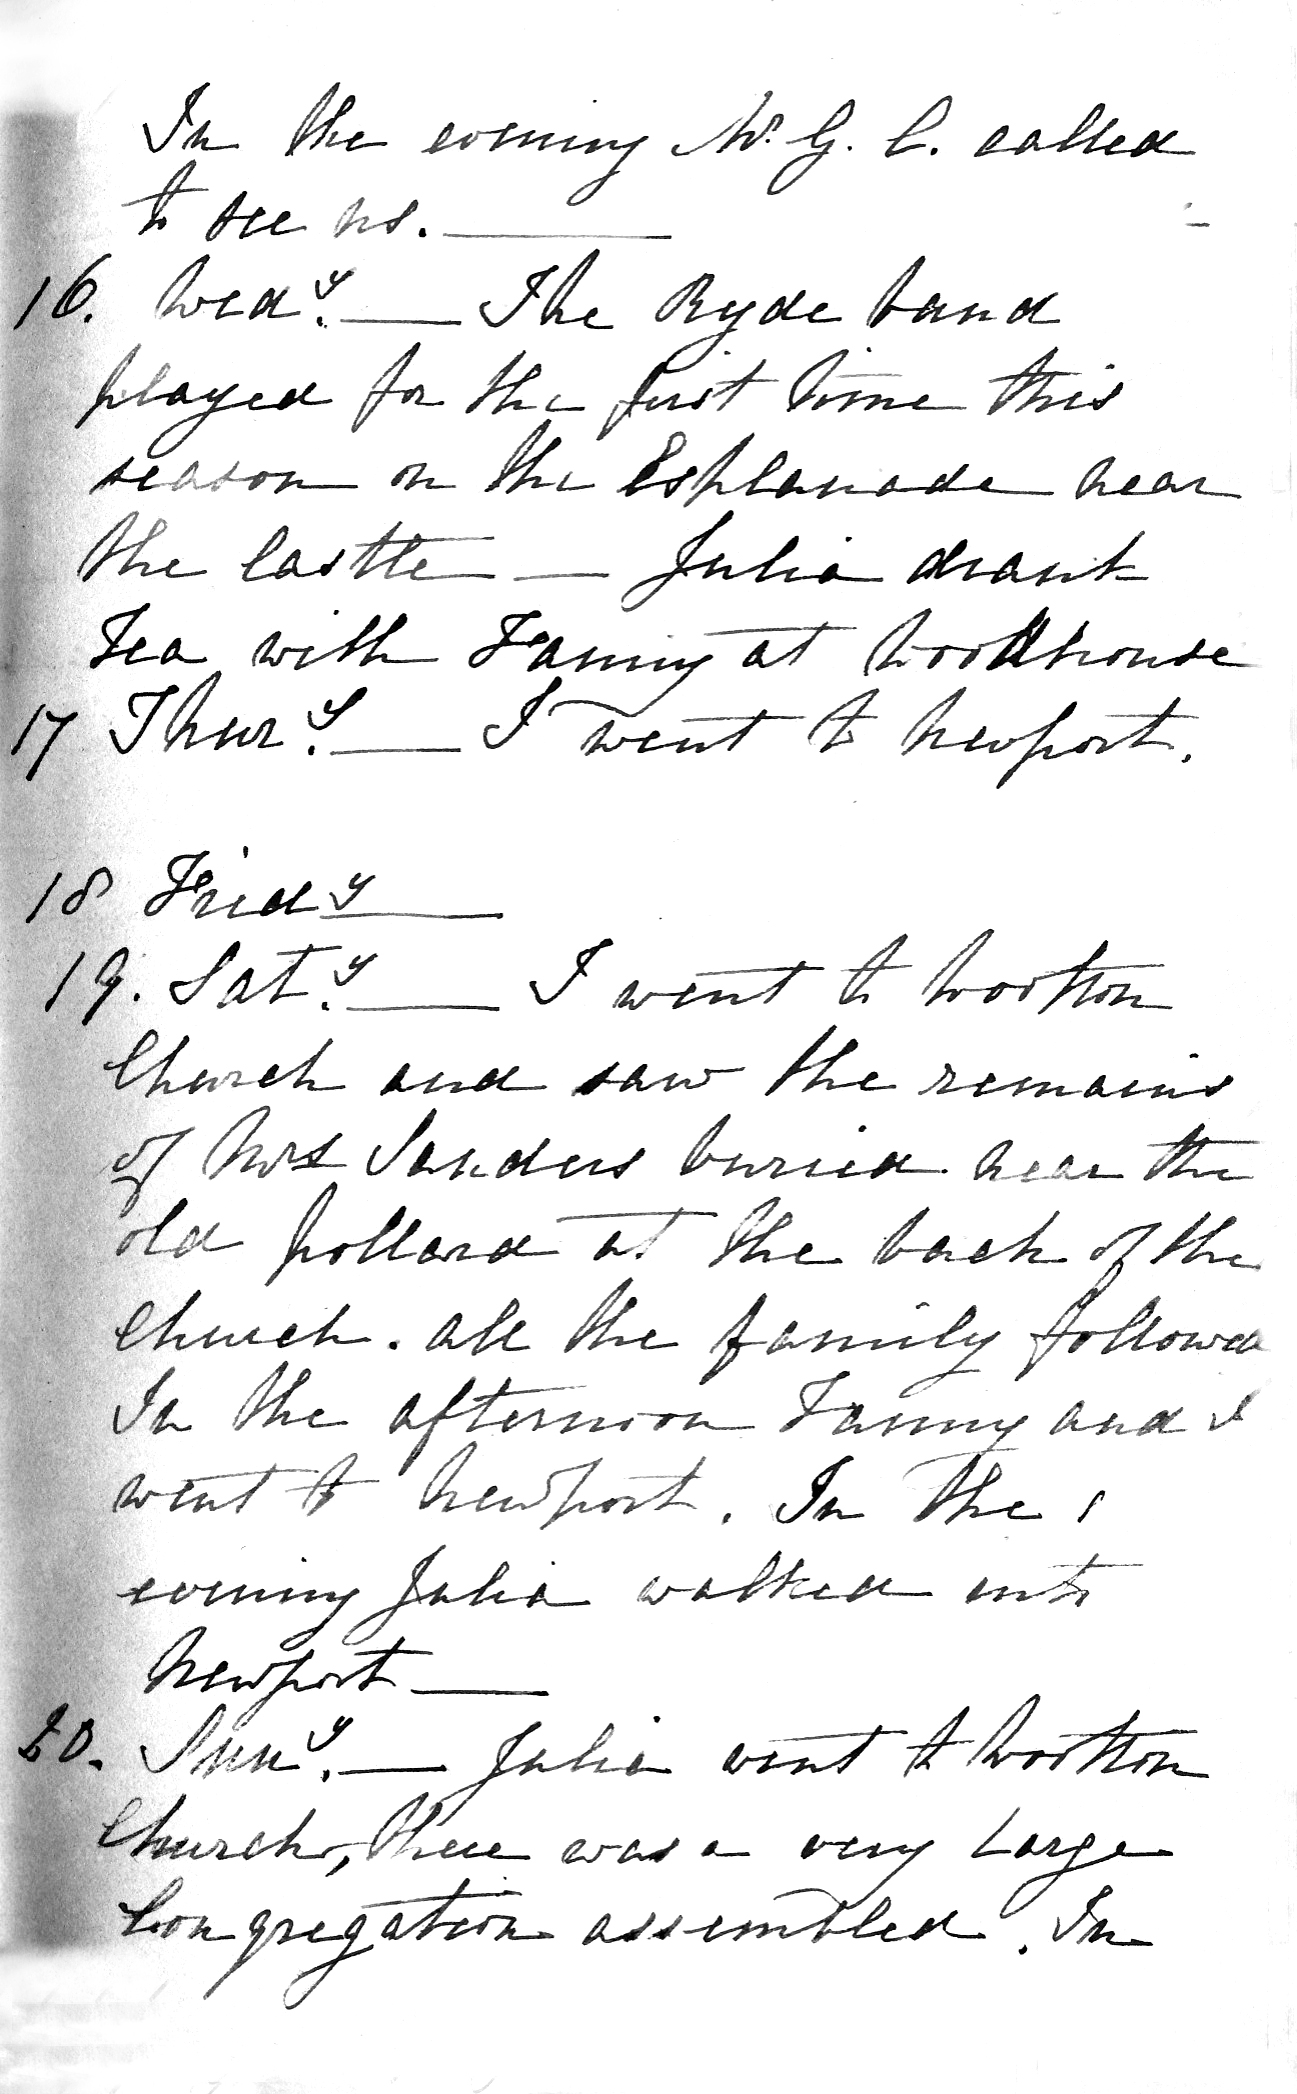 In the evening Mr. G. C. called
to see us. —
16. Wedy. — The Ryde band
played for the first time this
season on the Esplanade near
the Castle — Julia drank
Tea with Fanny at Woodhouse
17 Thury. — I went to Newport.
18 Fridy —
19. Saty. — I went to Wootton
Church and saw the remains
of Mrs Sanders buried near the
old pollard at the back of the
Church. all the family followed
In the afternoon Fanny and I
went to Newport. In the
evening Julia walked into
Newport —
20. Suny. — Julia went to Wootton
Church, there was a very large
Congregation assembled. In